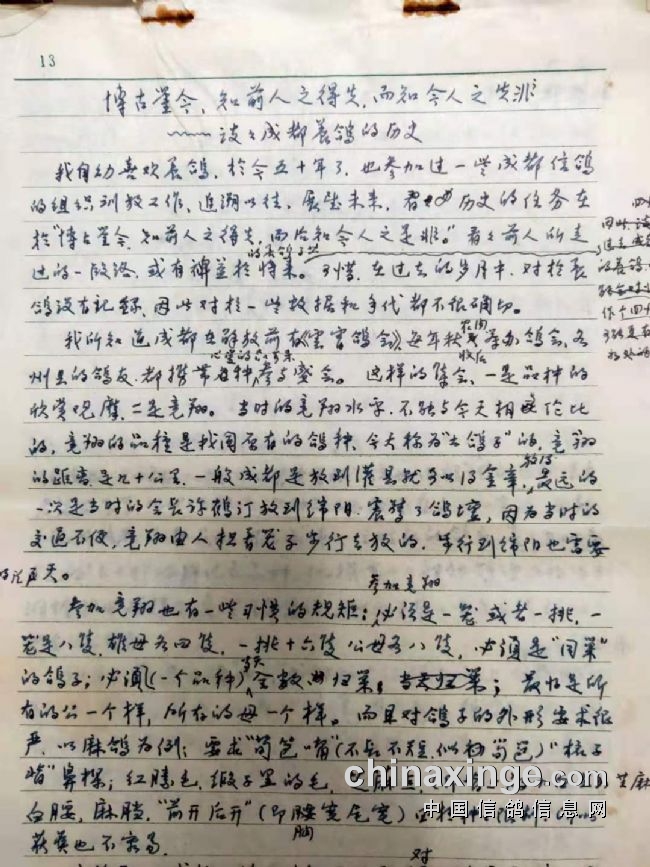 13
博古鉴今、知前人之得失,而知今人之失非
——谈谈成都养鸽的历史
我自幼喜欢养鸽,於今五十年了,也参加过一些成都信鸽
的组织训放工作、追溯以往,展望未来,历史的任务在
於"博古鉴今、知前人之得失,而后知今人之是非。"看看前人所走
过的一段路,或有裨益於将来。可惜,在过去的岁月中,对於养
鸽没有记录,因此对於一些数据和年代都不很确切。
我所知道成都在解放前有《云霄鸽会》每年秋收后举办鸽会、各
州县的鸽友,都携带参与盛会。这样的集会,一是品种的
欣赏观摩,二是竞翔。当时的竞翔水平,不能与今天相比
的,竞翔的品种是我国原有的鸽种,今天称为"土鸽子"的,竞翔
的距离是几十公里,一般成都是放到灌县就可以得金章,放得最远的
一次是当时的会长许鹤汀放到绵阳,震惊了鸽坛,因为当时的
交通不便,竞翔由人担着笼子步行去放的,步行到绵阳也需要
好几天。
参加竞翔也有一些习惯的规矩;参加竞翔必须是一笼或者一挑,一
笼是八只雄母各四只,一挑十六只公母各八只,必须是"同巢"
的鸽子;必须(一个品种)当天全数归巢;最好是所
有的公一个样,所有的母一个样。而且对鸽子的外形要求很
严,以麻鸽为例:要求"笋笆嘴"(不长不短,似扬笋笆)"桃子
鼻;红膀毛,缎子里的毛,
白腰,麻膛,"前开后开"(即胸宽尾宽)
获奖也不容易。
对
chinaxinge.com
中国信鸽信息网